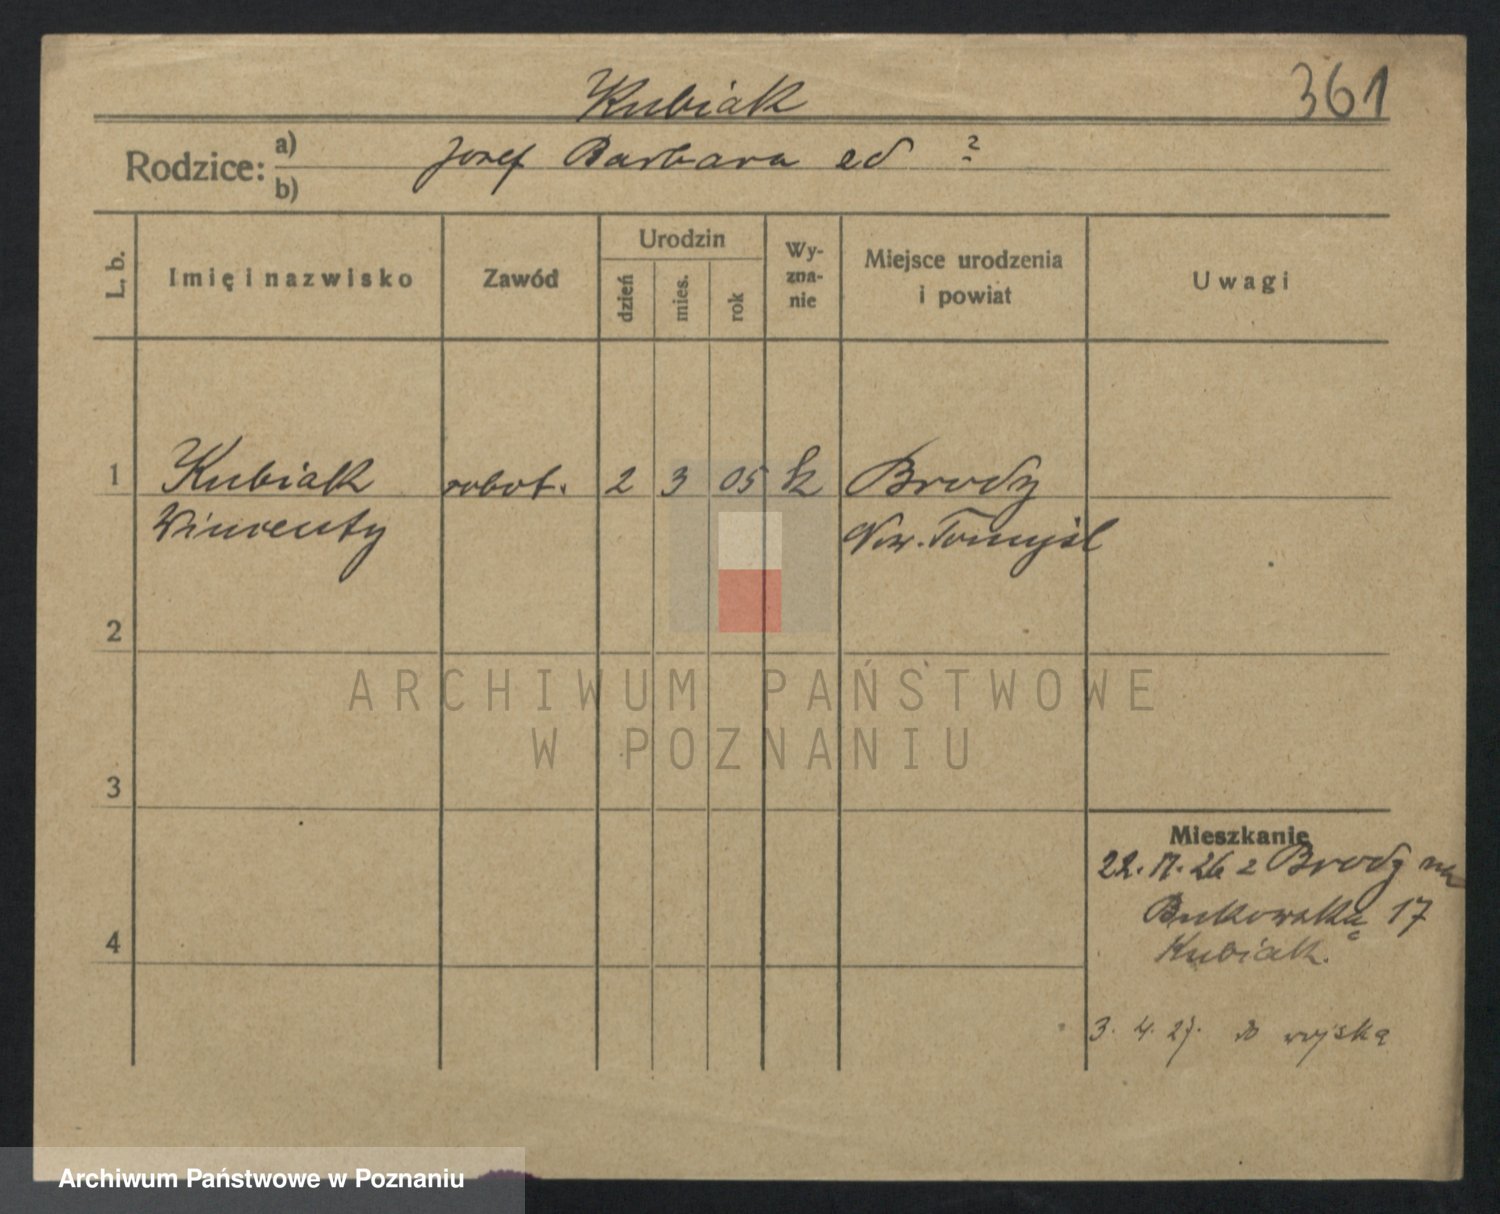 Kubiak
361
Rodzice: a) b)
Josef Barbara ed ?
L. b.
Imię i nazwisko
Zawód
Urodzin
dzień
mies.
rok
Wy-
zna-
nie
Miejsce urodzenia
i powiat
Uwagi
1
Kubiak robot. 2 3 05 k Brody
Wincenty Now. Tomyśl
2
3
4
ARCHIWUM PAŃSTWOWE
W POZNANIU
Mieszkanie
22. 11. 26 z Brody na
Bukowską 17
Kubiak.
3. 4. 27. do wojska
Archiwum Państwowe w Poznaniu